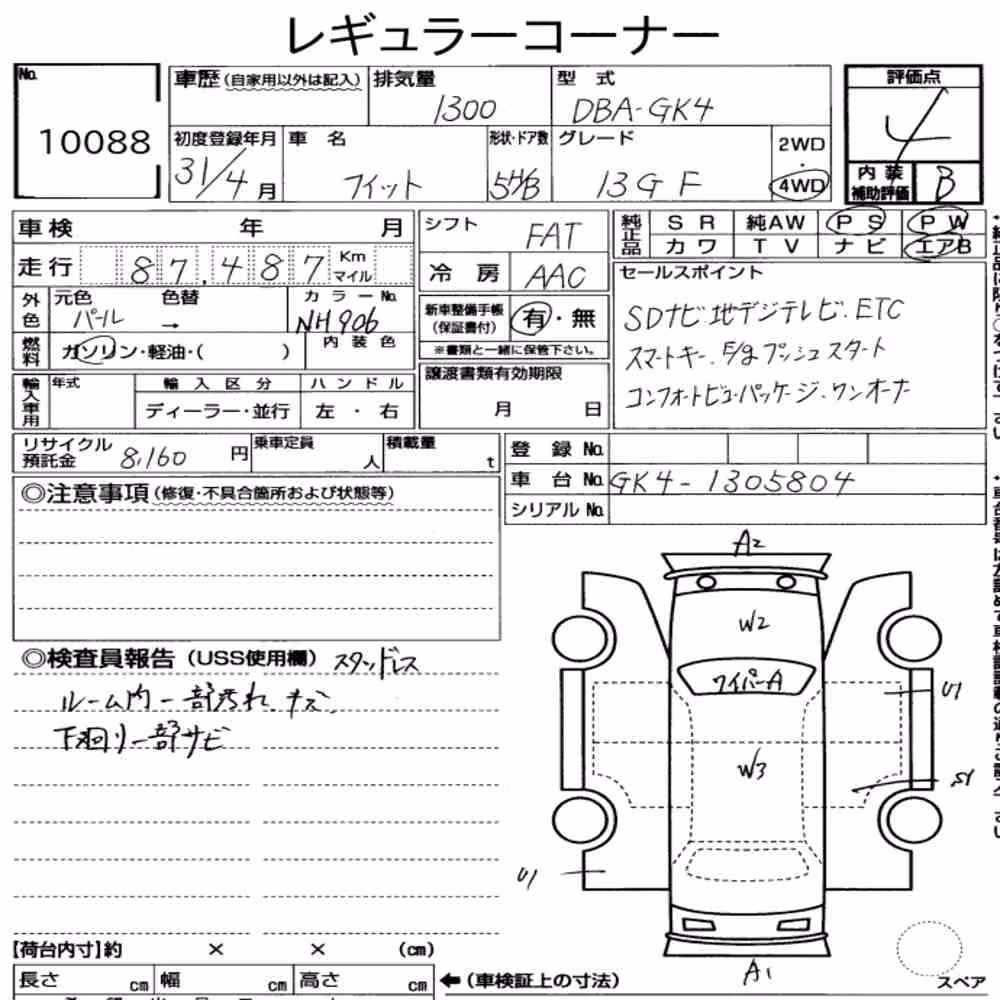 レギュラーコーナー
No. 10088
車歴 (自家用以外は記入)
排気量 1300
型式 DBA-GK4
評価点 4
初度登録年月 31/4 月
車名 フィット
形状・ドア数 5H/B
グレード 13G F
2WD・4WD
内装補助評価 B
車検 年 月
走行 87,487 Km マイル
シフト FAT
冷房 AAC
純正品 SR 純AW PS PW
カワ TV ナビ エアB
外色 元色 パール 色替 →
カラーNo. NH906
内装色
燃料 ガソリン・軽油・( )
新車整備手帳(保証書付) 有・無
※書類と一緒に保管下さい。
セールスポイント
SDナビ 地デジテレビ. ETC
スマートキー. E/g プッシュスタート
コンフォートビューパッケージ. ワンオーナー
輸入車用 年式 輸入区分 ハンドル
ディーラー・並行 左・右
譲渡書類有効期限
月 日
リサイクル預託金 8,160 円
乗車定員 人
積載量 t
登録No.
車台No. GK4-1305804
シリアルNo.
◎注意事項 (修復・不具合箇所および状態等)
◎検査員報告 (USS使用欄) スタッドレス
ルーム内一部汚れ、キズ、
下廻り一部サビ
A2
W2
ワイパーA
U1
W3
S1
U1
A1
スペア
【荷台内寸】約 × × (cm)
長さ cm 幅 cm 高さ cm
←(車検証上の寸法)